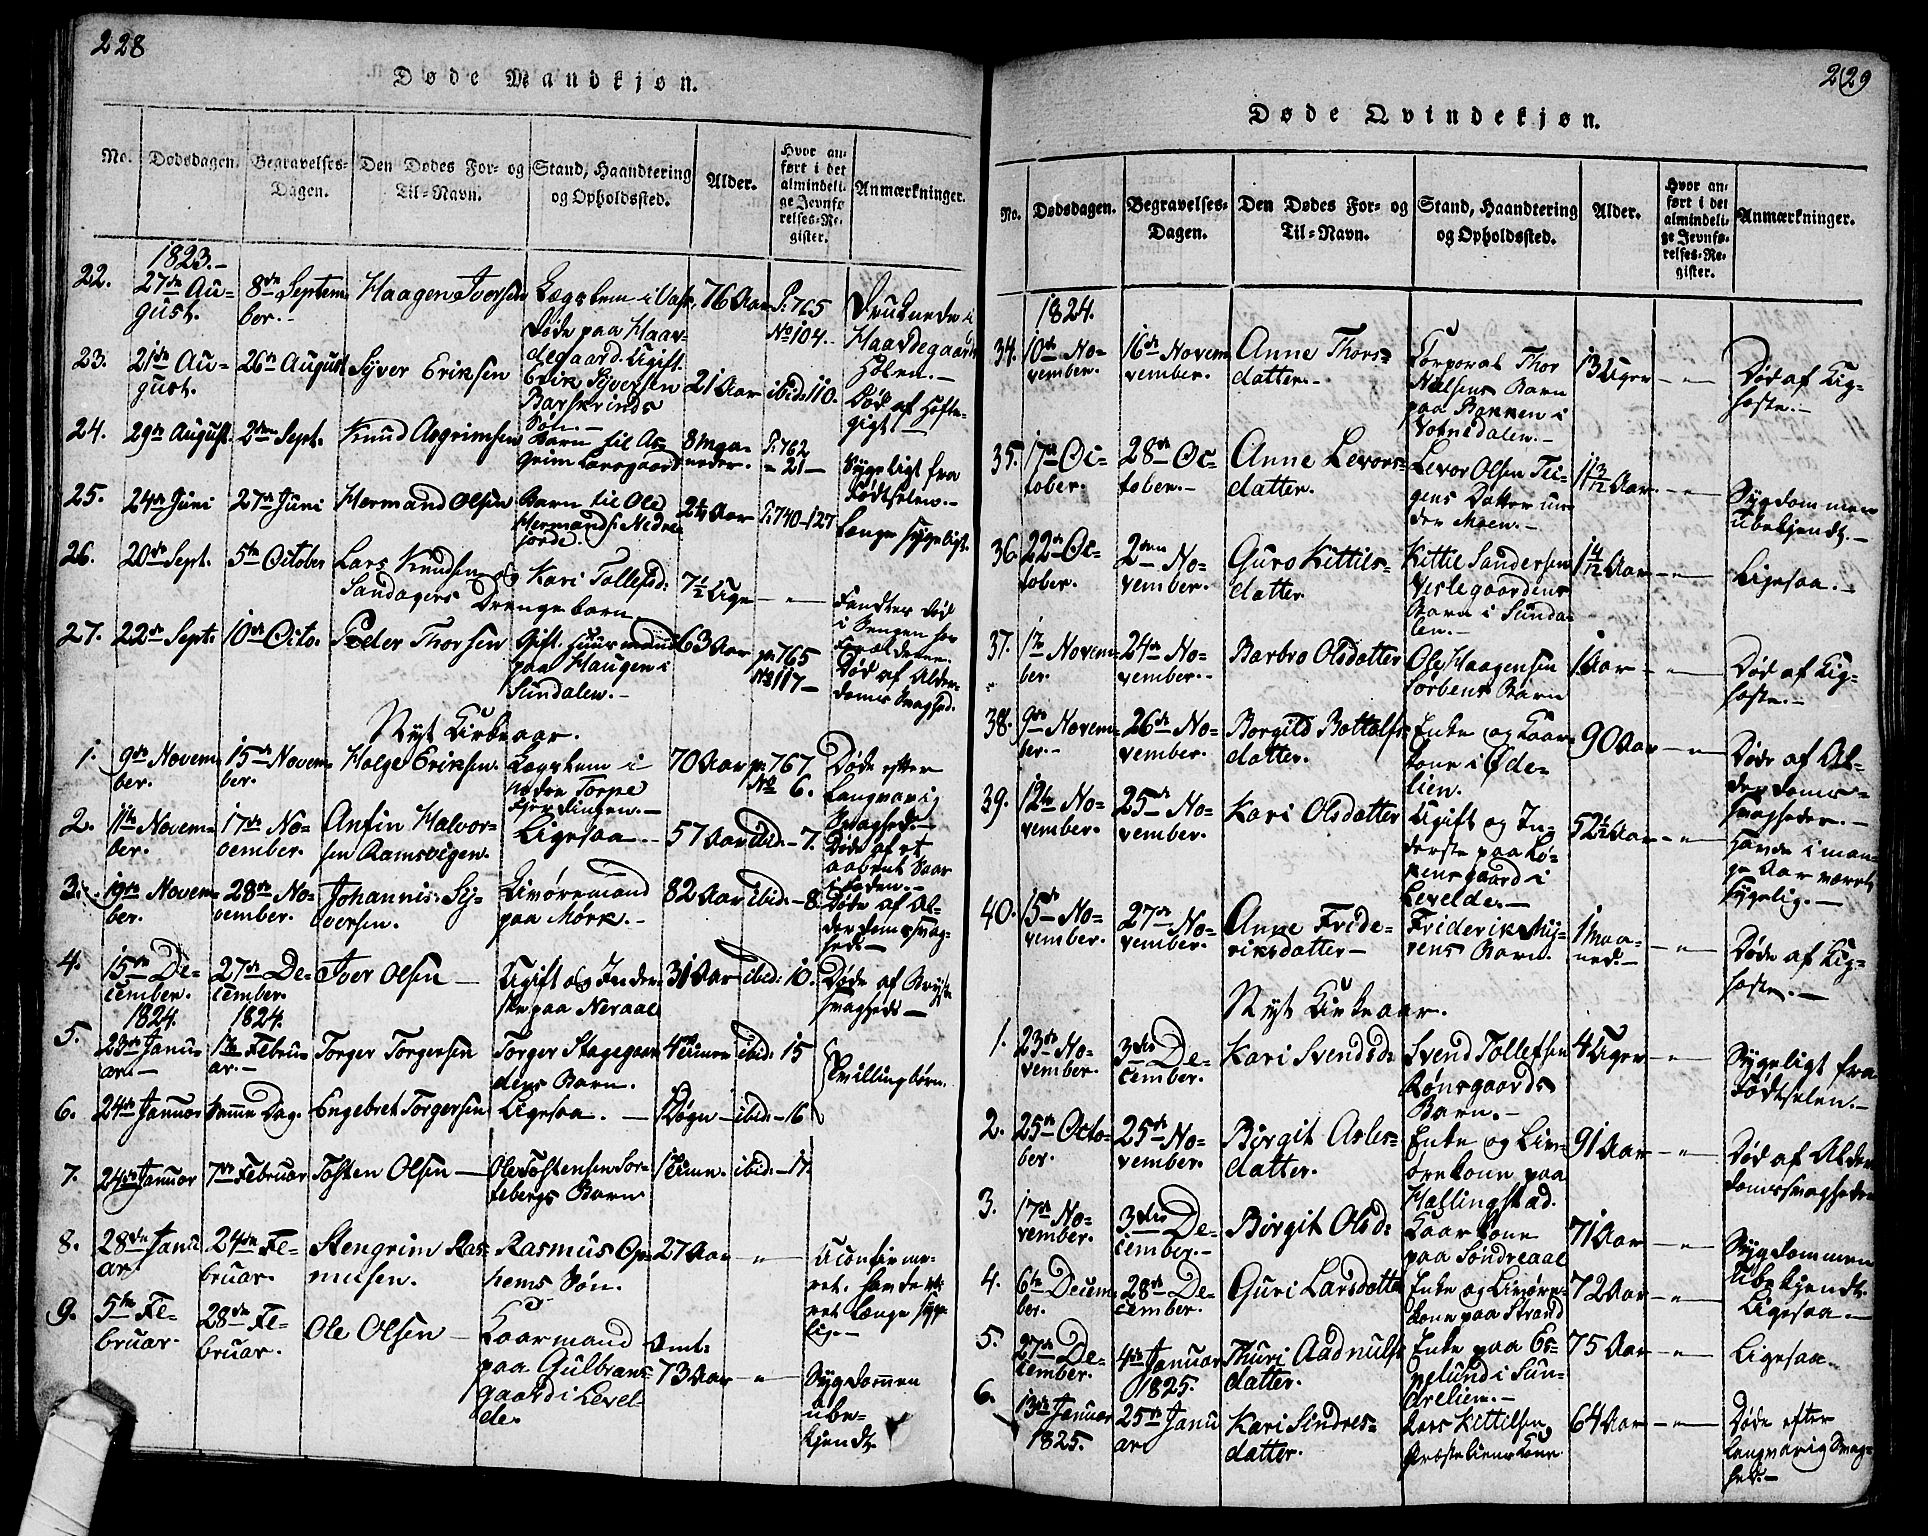 228
Døde Mandkjøn.
No. Dødsdagen. Begravelses-Dagen. Den Dødes For- og Til-Navn. Stand, Haandtering og Opholdssted. Alder. Hvor anført i det almindelige Jevnførelses-Register. Anmærkninger.
1823.-
22. 27de August. 8de September.- Haagen Iversen Lægslem i Vats. Døde paa Haardegaard. 76 Aar P. 765 No 104. Druknede i Haardegaards Hølen.-
23. 21de August. 26de August Syver Eriksen Ugift. Erik Syversen Barskrinds Søn.- 21 Aar ibid: 110. Død af Hoftegigt.-
24. 29de August. 2den Sept. Knud Asgrimsen Barn til Asgrim Larsgaard 8 Maaneder. P. 762 - 21- Sygeligt fra Fødtselen.-
25. 24de Juni 27de Juni Hermand Olsen Barn til Ole Hermands: Nedre 2¼ Aar P. 740-127 Længe sygeligt.
26. 20de Sept. 5te October Lars Knudsen og Kari Tollefsd: Sandagers Drengebarn 7½ Uge - " - Fandtes død i Sengen hos Forældrene.
27. 22de Sept: 10de Octo. Peder Thorsen Gift Huusmand paa Haugen i Sundalen.- 63 Aar p. 765 No 117- Død af Alderdoms Svaghed.
Nyt Kirkeaar.
1. 9de November. 15de November. Holge Eriksen. Lægslem i nedre Torpe Fjerdingen.- 70 Aar p. 767 No 6. Døde efter langvarig Svaghed.-
2. 11te November. 17de November. Anfin Halvorsen Ramsvigen. Ligesaa.- 57 Aar ibid.- 7. Døde af et aabent Saar i Foden.-
3. 19de November. 28de November. Johannis Syversen. Livøremand paa Mørk.- 82 Aar ibid.- 8. Døde af Alderdomssvaghed.-
4. 15de December. 27de December. Iver Olsen - Ugift og Inderste paa Neraal 31 Aar ibid: 10. Døde af Brystsvaghed-
1824. 1824.
5. 23de Januar.- 1ste Februar.- Torger Torgersen Torger Stagegaardens Barn. 4 Timer ibid: 15 Tvillingbørn.
6. 24de Januar Samme Dag. Engebret Torgersen Ligesaa.- 1 Døgn - ibid - 16
7. 24de Januar 7de Februar Tosten Olsen - Ole Tostensen Barn 1 Time. ibid - 17.
8. 28de Januar 24de Februar. Stengrim Rasmusen. Rasmus Ophems Søn. 27 Aar " Uconfirmeret. Havde været længe sygelig.-
9. 5te Februar. 28de Februar. Ole Olsen - Kaarmand paa Gulbransgaard i Levelde. Amt- 73 Aar " Sygdommen ubekjendt.
229
Døde Qvindekjøn.
No. Dødsdagen. Begravelses-Dagen. Den Dødes For- og Til-Navn. Stand, Haandtering og Opholdssted. Alder. Hvor anført i det almindelige Jevnførelses-Register. Anmærkninger.
1824.
34. 10de November. 16de November. Anne Thorsdatter.- Corporal Thor Nielsens Barn paa Bakken i Votnedalen.- 13 Uger - " - Død af Kighoste.-
35. 17de October. 28de October.- Anne Levorsdatter. Levor Olsen Teigens Datter under Moen.- 11 3/12 Aar. - " - Sygdommen ubekjendt.-
36. 22de October. 2den November. Guro Kittilsdatter Kittil Sandersen Veslegaardens Barn i Sundalen.- 1 4/12 Aar - " - Ligesaa.-
37. 1ste November. 24de November.- Barbro Olsdatter Ole Haagensen Sørbens Barn 1 Aar - " - Død af Kighoste.-
38. 9de November.- 26de November. Borgild Bottolfsdatter. Enke og Kaarkone i Ødelien. 90 Aar - " - Døde af Alderdomssvagheder.-
39. 12te November. 25de November. Kari Olsdatter Ugift og Inderste paa Løkensgaard i Levelde.- 52½ Aar - " - Havde i mange Aar været sygelig.-
40. 15de November. 27de November. Anne Frideriksdatter- Friderik Myrens Barn. 1 Maaned.- - " - Døde af Kighoste.-
Nyt Kirkeaar.
1. 23de November. 3die December. Kari Svendsd: Svend Tollefsen Rønsgaards Barn.- 4 Uger - " - Sygeligt fra Fødtselen.-
2. 25de October. 25de November. Birgit Aslesdatter. Enke og Livørekone paa Hallingstad. 91 Aar - " - Død af Alderdomssvagheder
3. 17de November. 3die December.- Birgit Olsd: Kaarkone paa Søndreaal 71 Aar - " - Sygdommen ubekjendt.
4. 6te December. 28de December. Guri Larsdatter Enke og Livørekone paa Strand 72 Aar - " - Ligesaa.-
5. 27de December. 4de Januar 1825. Thuri Aadnulfsdatter. Enke paa Espelund i Sundrelien.- 75 Aar - " - Ligesaa.
6. 13de Januar 1825. 25de Januar Kari Sindresdatter. Lars Kittilsen Præsteliens Kone 64 Aar - " - Døde efter langvarig Svaghed.-